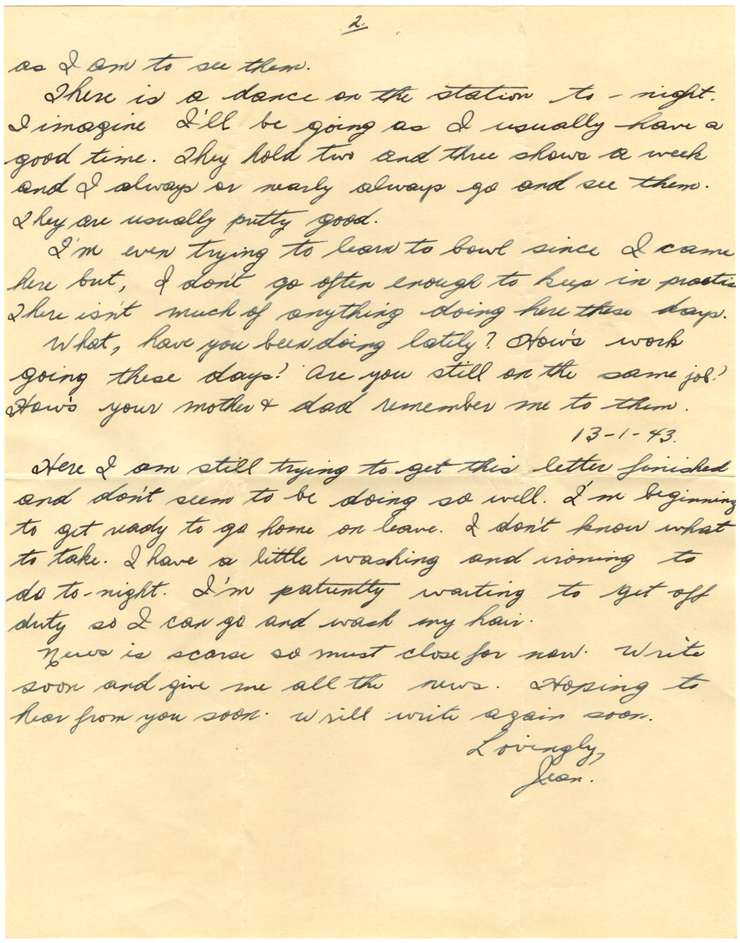 2.
as I am to see them.
There is a dance on the station to-night.
I imagine I'll be going as I usually have a
good time. They hold two and three shows a week
and I always or nearly always go and see them.
They are usually pretty good.
I'm even trying to learn to bowl since I came
here but, I don't go often enough to keep in practis
There isn't much of anything doing here these days.
What, have you been doing lately? How's work
going these days? Are you still on the same job?
How's your mother & dad remember me to them.
13-1-43.
Here I am still trying to get this letter finished
and don't seem to be doing so well. I'm beginning
to get ready to go home on leave. I don't know what
to take. I have a little washing and ironing to
do to-night. I'm patiently waiting to get off
duty so I can go and wash my hair.
News is scarse so must close for now. Write
soon and give me all the news. Hoping to
hear from you soon. Will write again soon.
Lovingly,
Jean.